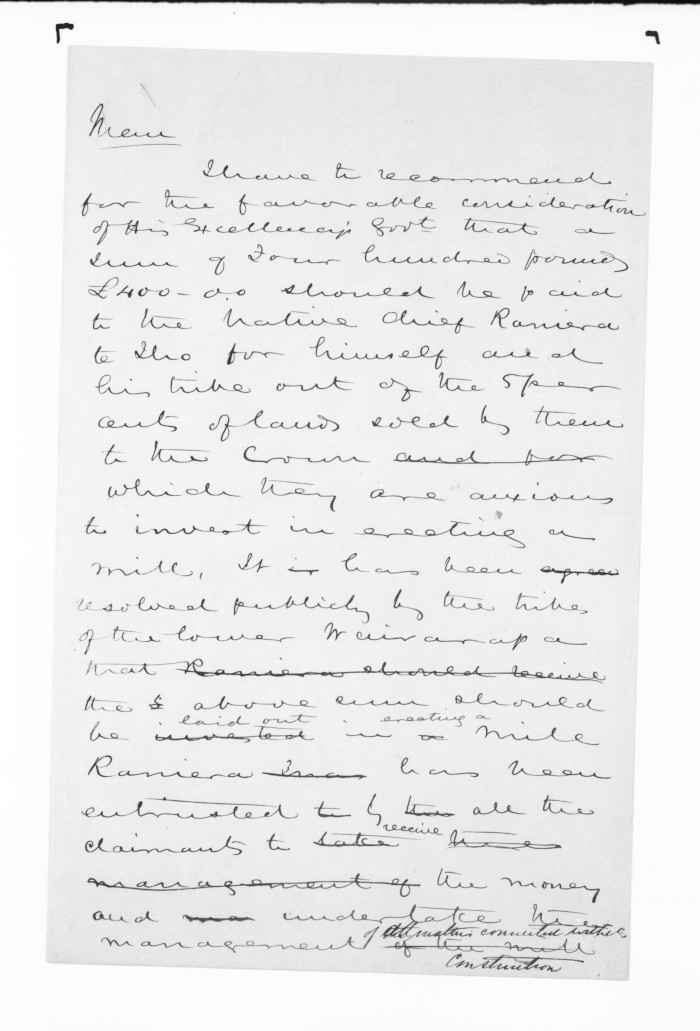 Mem
I have to recommend
for the favorable consideration
of His Excellency's Govt that a
Sum of Four hundred pounds
£400-0.0 should be paid
to the Native Chief Raniera
te Iho for himself and
his tribe out of the 5 per
cents of lands sold by them
to the Crown and for
which they are anxious
to invest in erecting a
mill, It is has been agreed
resolved publicly by the tribes
of the lower Wairarapa
that Raniera should receive
the £ above sum should
laid out erecting a
be invested in a Mill
Raniera has been
entrusted to by the all the
receive
claimants to take the
management of the money
and undertake the
of all matters connected with
management of the mill
Construction